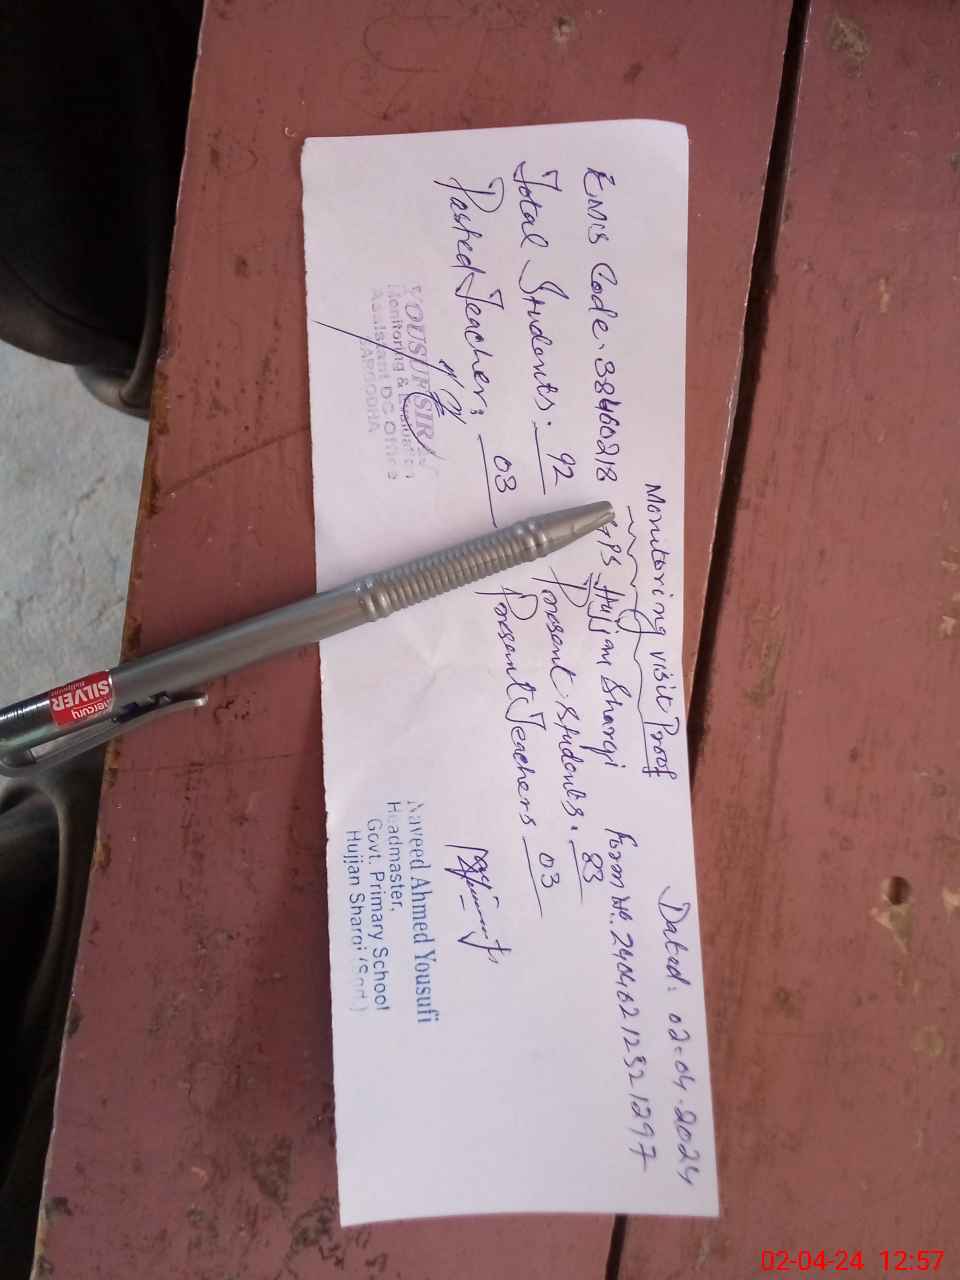 Monitoring visit Proof
Dated: 02-04-2024
EMIS Code. 38460218 GPS Hujjan Sharqi Form No. 24040212321297
Total Students. 92 Present Students. 83
Posted Teacher: 03 Present Teachers 03
YOUSUF SIRAJ
Monitoring & Evaluation
Assistant DC Office
SARGODHA
Naveed Ahmed Yousufi
Headmaster,
Govt. Primary School
Hujjan Sharqi (Sgd.)
mercury
SILVER
Ballpoint
02-04-24 12:57